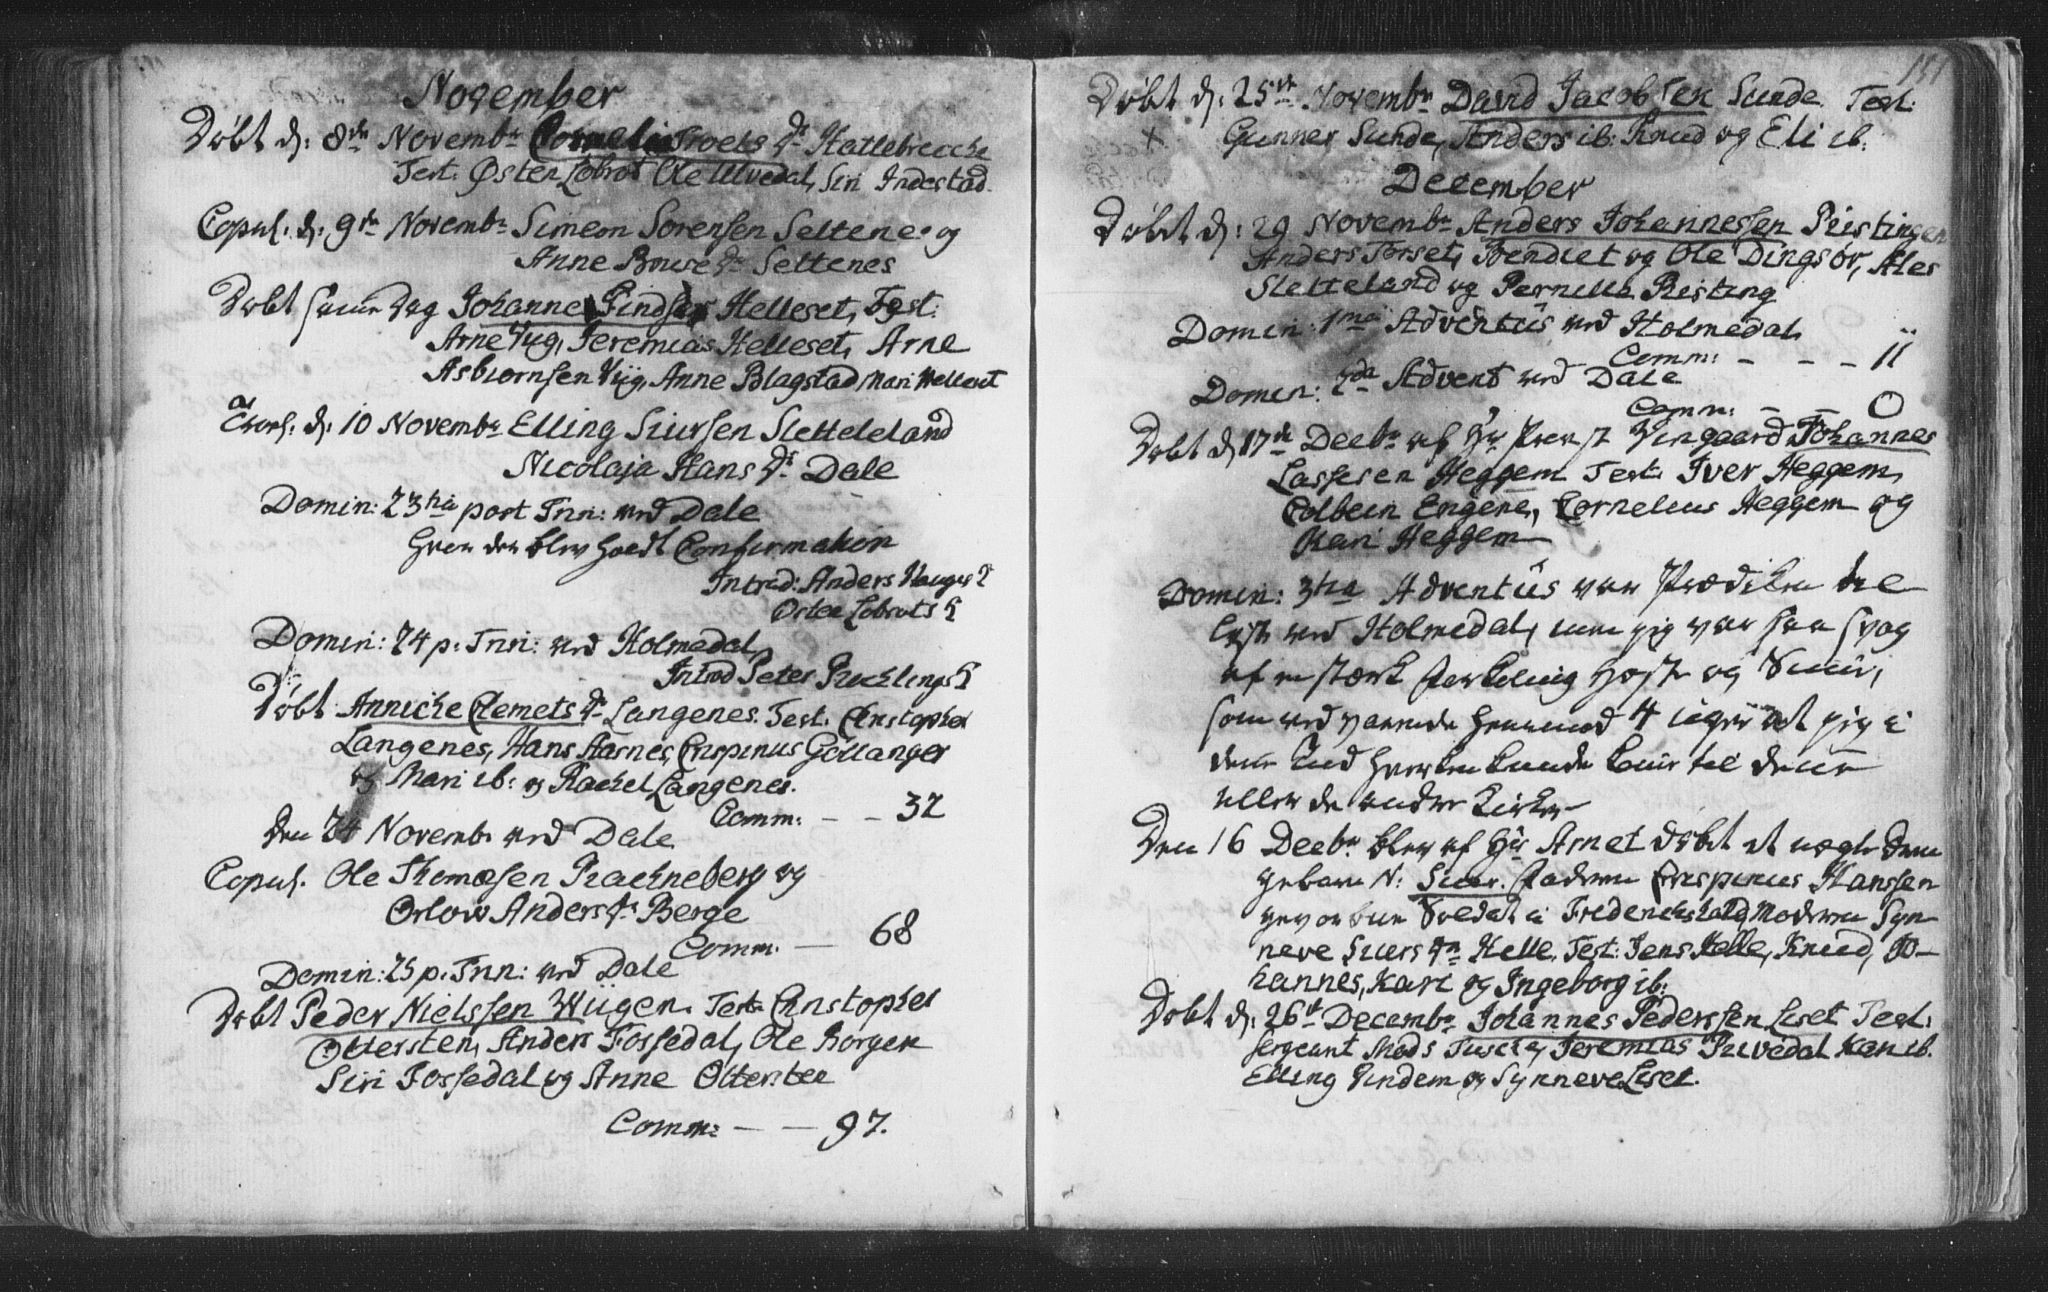 November
Døbt d: 8de Novembr Cornelia Troels Dr Hatlebrecke
Test: Østen Lobrot Ole Ulvedal, Siri Indestad
Copul. d: 9de Novembr Simeon Sorensen Seltenes og
Anne Bowe Dr Seltenes
Døbt samme dag Johanne Findsen Helleset, Test:
Arne Viig, Jeremias Helleset, Arne
Asbiornsen Viig, Anne Blagstad Mari Helleset
d: 10 Novembr Elling Siursen Sletteleland
og Nicolaja Hans Dr Dale
Domin: 23tia post Trin: ved Dale
hvor der blev holdt Confirmation
Introd: Anders Hauges H
Osten Lobrots H
Domin: 24 p. Trin: ved Holmedal
Introd Peter H
Døbt Anniche Clemets Dr Langenes. Test. Christopher
Langenes, Hans Aarnes, Crispinus Göllanger
og Mari ib: og Rachel Langenes.
Comm: - - 32
Den 24 Novemb: ved Dale
Copul. Ole Thomæsen Rachneberg og
Orlow Anders Dr Berge
Comm: - 68
Domin: 25 p. Trin: ved Dale
Døbt Peder Nielssen Wiigen. Test: Christopher
Ottersten, Anders Fossedal, Ole Borgen
Siri Fossedal og Anne Ottersten
Comm: - - 97.
151
Døbt d: 25de Novembr David Jacobsen Sunde. Test:
x Gunner Sunde, Anders ib: Knud og Eli ib.
December
Døbt d: 29 Novembr Anders Johannessen Ristingen
Anders Torset, Bendict og Ole Dingsør, Ales
Sletteland og Pernille Risting
Domin: 1ma Adventüs ved Holmedal
Comm: - - - 11
Domin: 2da Advent ved Dale
Comm: - - 0
Døbt d 17de Decbr af Hr Provst Wingaard Johannes
Lassesen Heggem Test: Iver Heggem,
Colbein Engene, Cornelius Heggem og
Kari Heggem
Domin: 3tia Adventüs var Prædiken til
lyst ved Holmedal, men jeg var saa svag
af en stærk forkøling Hoste og Snue,
som ved varende henimod 4 uger at jeg i
den tiid hverken kunde komme til denne
eller de andre Kirker
Den 16 Decbr blev af Hr Arnet døbt et uægte Barn
gebarn N: Siur. Faderen Crispinus Hanssen
gevorben Soldat i Friderichshald Moderen Syn-
neve Siurs Dr Helle. Test: Jens Helle, Knud, Jo-
hannes, Kari og Ingeborg ib:
Døbt d: 26de Decembr Johannes Pederssen Liset Test:
Sergeant Mads Tuscha, Jeremias Ulvedal Kari ib.
Elling Vindem og Synneve Liset.